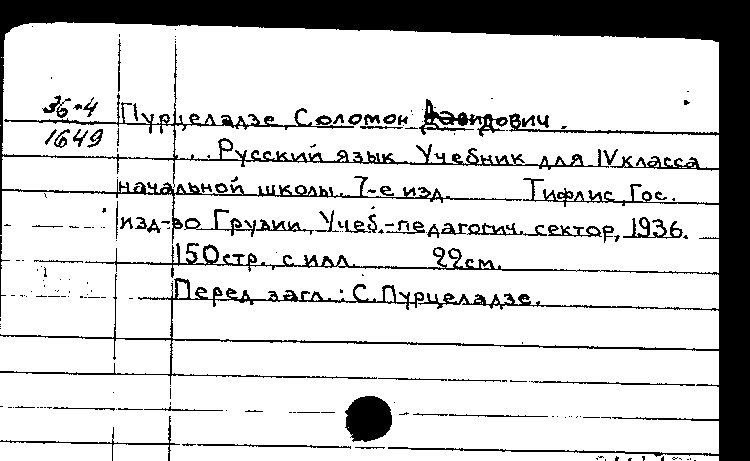 36-4
1649
Пурцеладзе, Соломон Давидович.
... Русский язык. Учебник для IV класса
начальной школы. 7-е изд. Тифлис, Гос.
изд-во Грузии, Учеб.-педагогич. сектор, 1936.
150 стр., с илл. 22 см.
Перед загл.: С. Пурцеладзе.